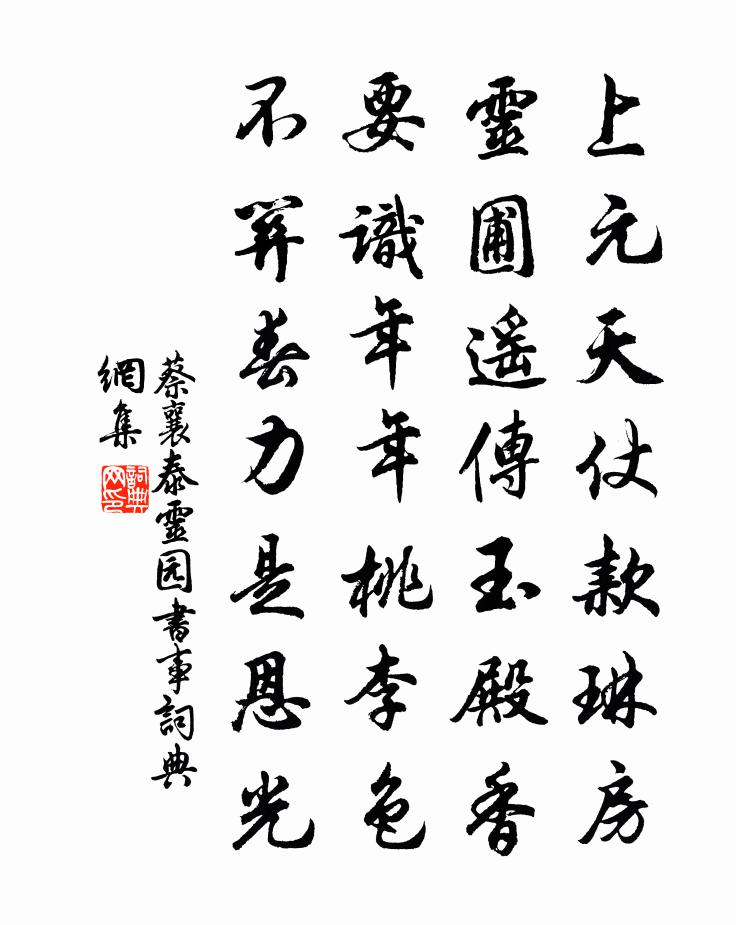 上元天仗款琳房
靈圃遥傳玉殿香
要識年年桃李色
不關春力是恩光
蔡襄泰靈园書事詞典
網集
詞典
网印